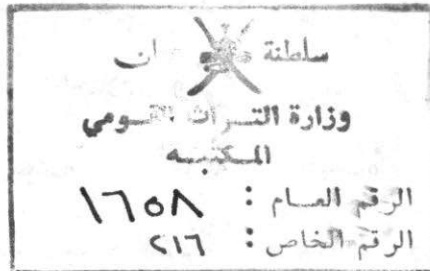 سلطنة عمان
وزارة التراث القومي
المكتبه
الرقم العام : ١٦٥٨
الرقم الخاص : ٢١٦